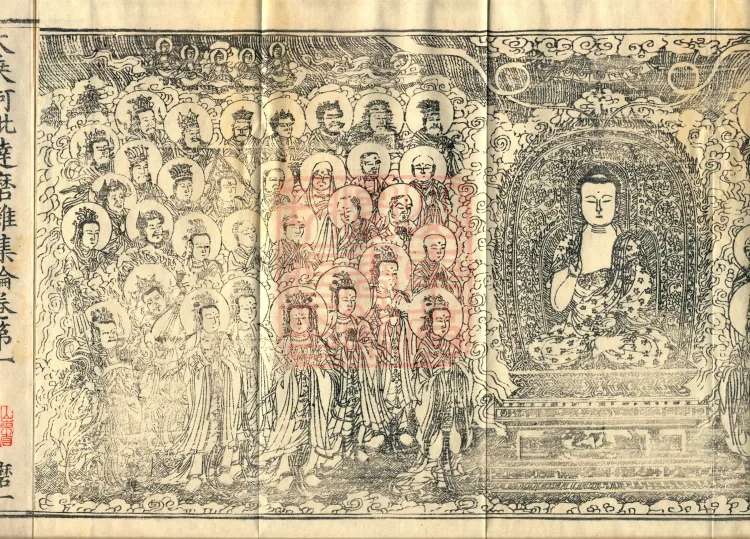 大乘阿毗達磨雜集論卷第一
磨一